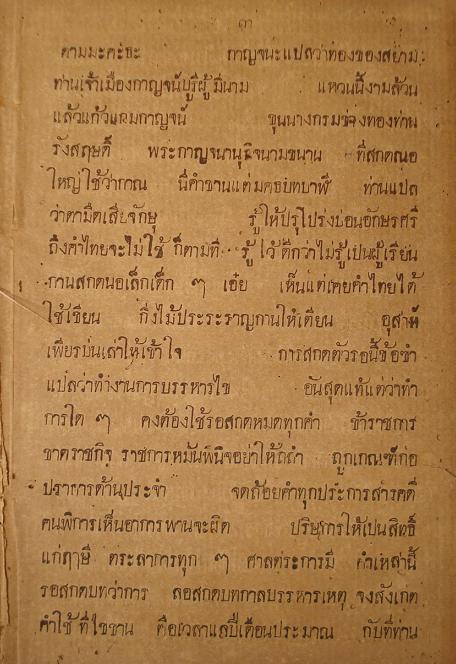 ๓๓
ตามมะคะธะ กาญจนะแปลว่าทองของสยาม
ท่านเจ้าเมืองกาญจน์บุรีผู้มีนาม แหวนนี้งามล้วน
แล้วแก้วแกมกาญจน์ ขุนนางกรมช่างทองท่าน
รังสฤษดิ์ พระกาญจนานุกิจนามขนาน ที่สกดณอ
ใหญ่ใช้ว่ากาณ นี่คำขานแต่มคธบทบาฬี ท่านแปล
ว่าตามืดเสียจักษุ รู้ให้ปรุโปร่งบ่อนอักษรศรี
ถึงคำไทยจะไม่ใช้ ก็ตามที รู้ไว้ดีกว่าไม่รู้เป็นผู้เรียน
กานสกดนอเล็กเด็ก ๆ เอ๋ย เห็นแต่เคยคำไทยได้
ใช้เขียน กิ่งไม้ประระรานกานให้เตียน อุสาห์
เพียรบ่นเล่าให้เข้าใจ การสกดตัวรอนี้ข้อขำ
แปลว่าทำงานการบรรหารไข อันสุดแท้แต่ว่าทำ
การใด ๆ คงต้องใช้รอสกดหมดทุกคำ ข้าราชการ
ขาดราชกิจ ราชการหมั่นพินิจอย่าให้ถลำ ถูกเกณฑ์ก่อ
ปราการด้านประจำ จดถ้อยคำทุกประการสารคดี
คนพิการเห็นอาการพานจะผิด บริษการให้เปนสิทธิ์
แก่ฤๅษี ตระลาการทุก ๆ ศาลตระการมี คำเหล่านี้
รอสกดบทว่าการ ลอสกดบทกาลบรรหารเหตุ จงสังเกต
คำใช้ที่ไขขาน คือเวลาแลปีเดือนประมาณ กับที่ท่าน